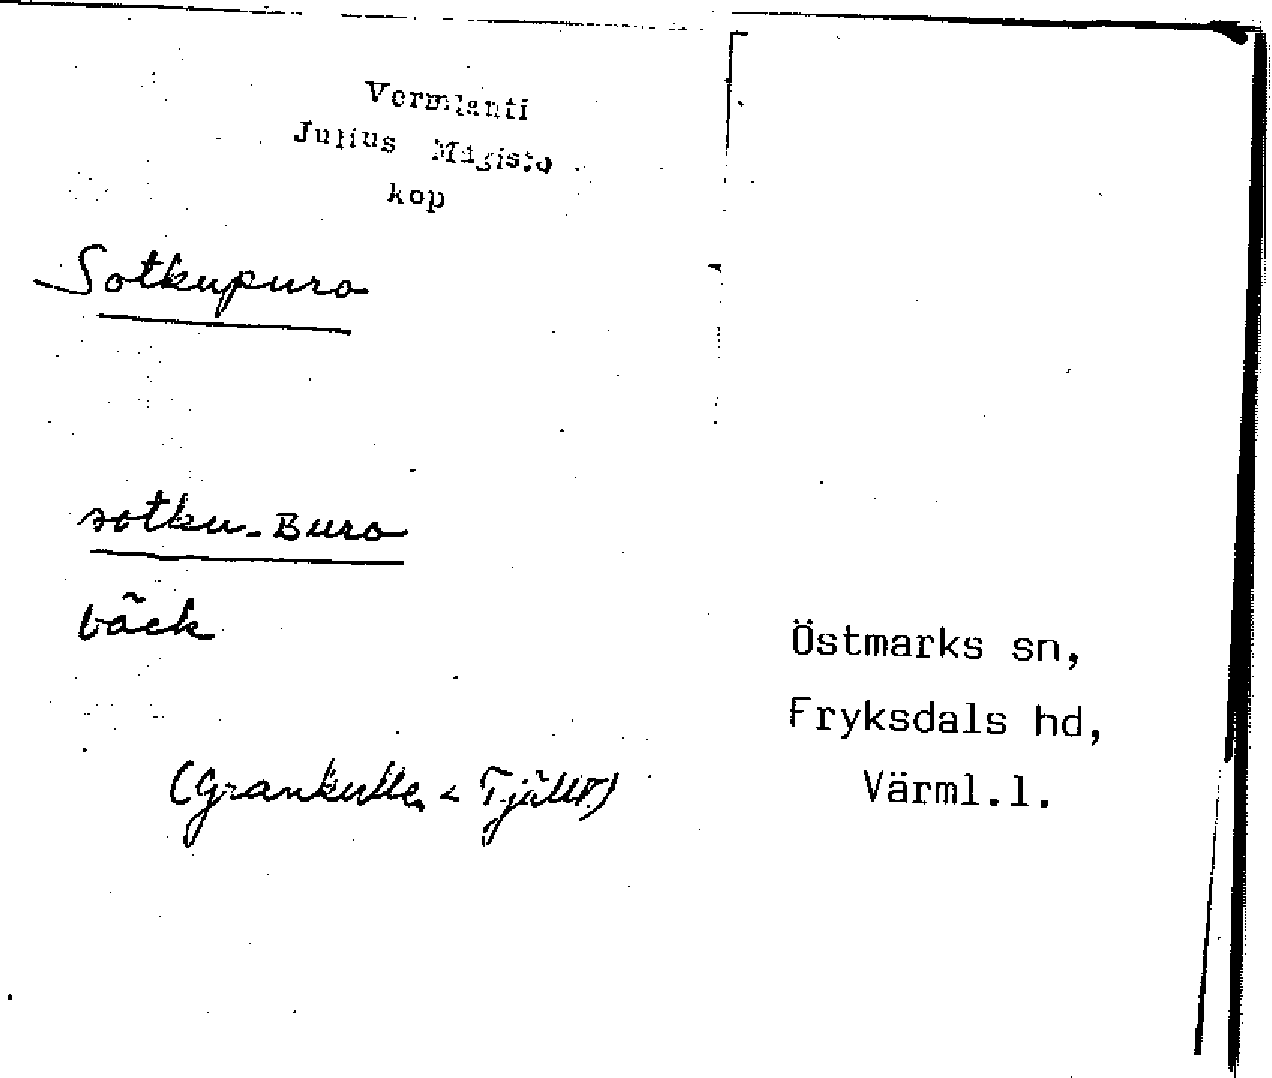 Vermlanti
Julius Mägiste
kop
Sotkupuro
sotku-Buro
bäck
(Grankulle < Tjällr.)
Östmarks sn,
Fryksdals hd,
Värml.l.